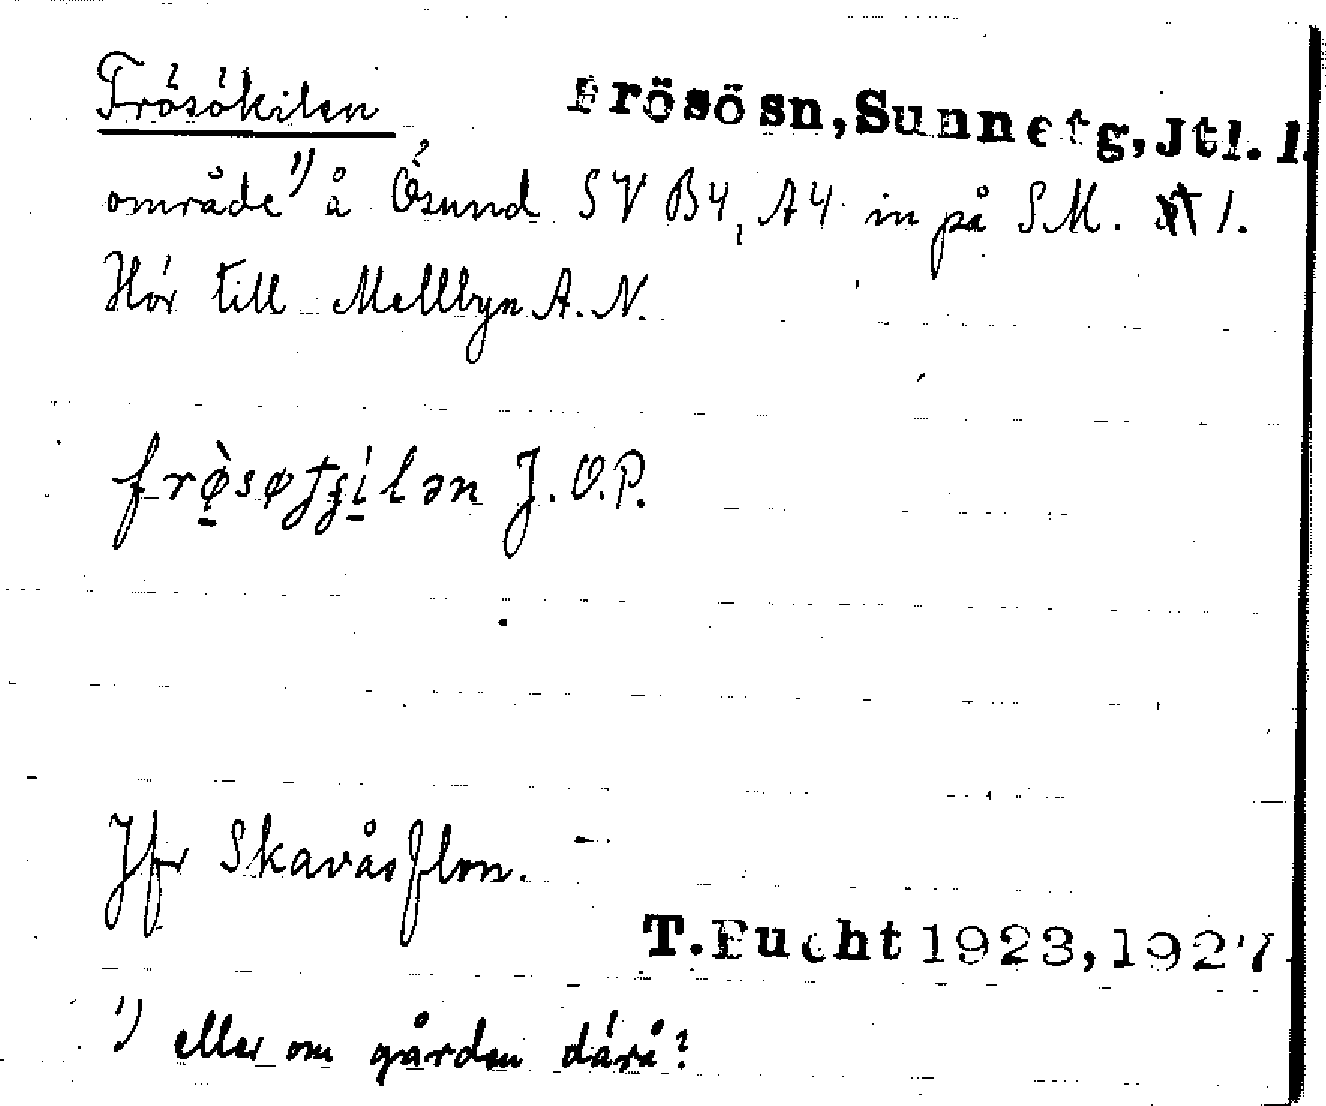 Frösökilen
Frösö sn, Sunne tg, Jtl. l.
område¹) å Ösund SV B4, A4 in på SM. 1.
Hör till Mellbyn A.N.
frø̀søt̶ʒílən J.O.P.
Jfr Skavåsflon.
T. Fucht 1923, 1927
¹) eller om gården därå?